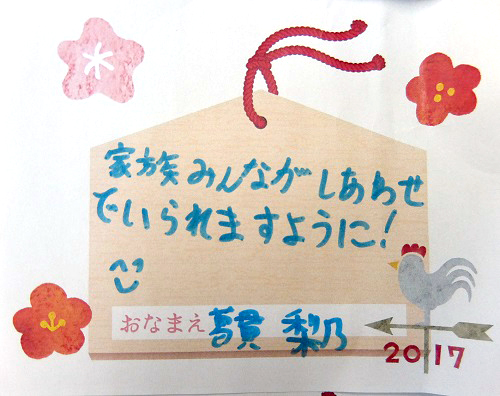 家族みんながしあわせ
でいられますように!
おなまえ 葛貫 梨乃
2017